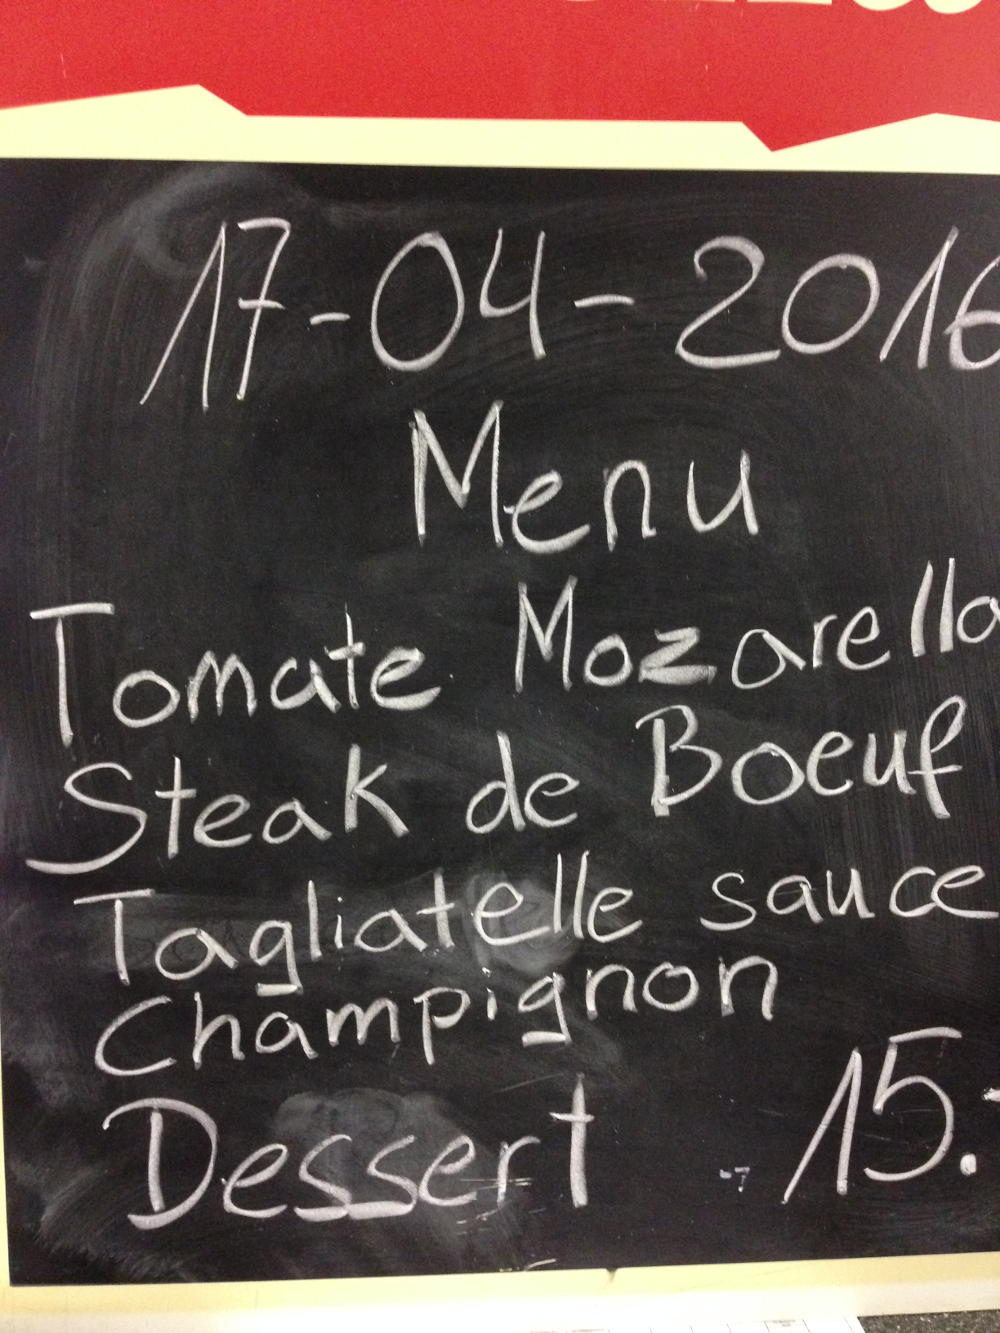 17-04-2016
Menu
Tomate Mozarella
Steak de Boeuf
Tagliatelle sauce
Champignon
Dessert 15.-